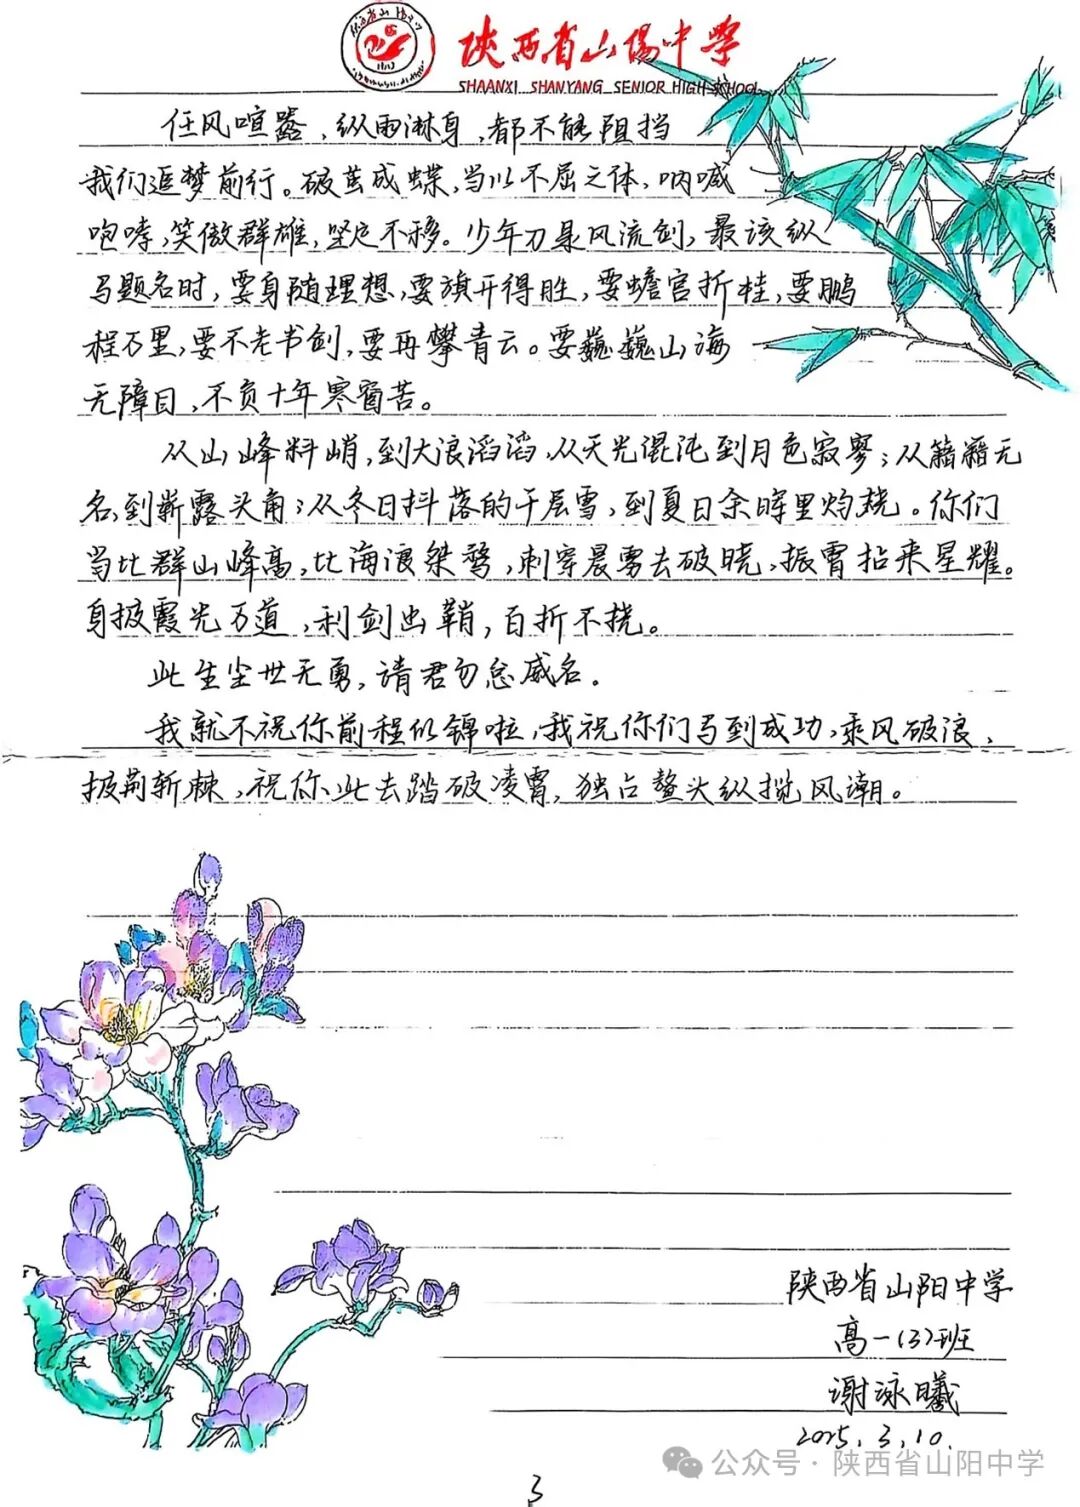 陕西省山阳中学
SHAANXI SHANYANG SENIOR HIGH SCHOOL
任风喧嚣，纵雨淋身，都不能阻挡
我们追梦前行。破茧成蝶，当以不屈之体，呐喊
咆哮，笑傲群雄，坚定不移。少年刀是风流剑，最该纵
马题名时，要身随理想，要旗开得胜，要蟾宫折桂，要鹏
程万里，要不老书剑，要再攀青云。要巍巍山海
无障目，不负十年寒窗苦。
从山峰料峭，到大浪滔滔，从天光混沌到月色寂寥；从籍籍无
名，到崭露头角；从冬日抖落的千层雪，到夏日余晖里灼烧。你们
当比群山峰高，比海浪桀骜，刺穿晨雾去破晓，振霄拈来星耀。
身披霞光万道，利剑出鞘，百折不挠。
此生尘世无勇，请君勿怠威名。
我就不祝你前程似锦啦，我祝你们马到成功，乘风破浪，
披荆斩棘，祝你此去踏破凌霄，独占鳌头纵揽风潮。
陕西省山阳中学
高一（3）班
谢泳曦
2025.3.10.
公众号·陕西省山阳中学
3